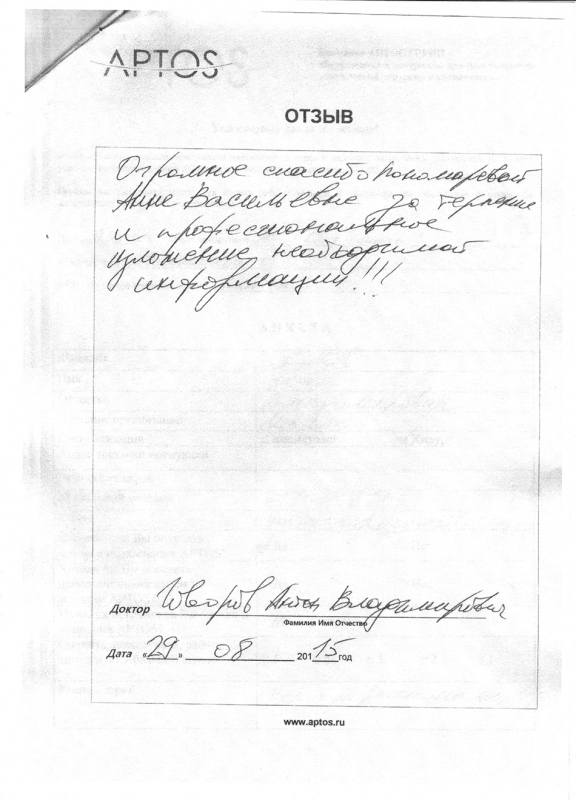 APTOS
ОТЗЫВ
Огромное спасибо Пономаревой
Анне Васильевне за терпение
и профессиональное
изложение необходимой
информации!!!
Доктор Антон Владимирович
Фамилия Имя Отчество
Дата «29» 08 2015 год
www.aptos.ru